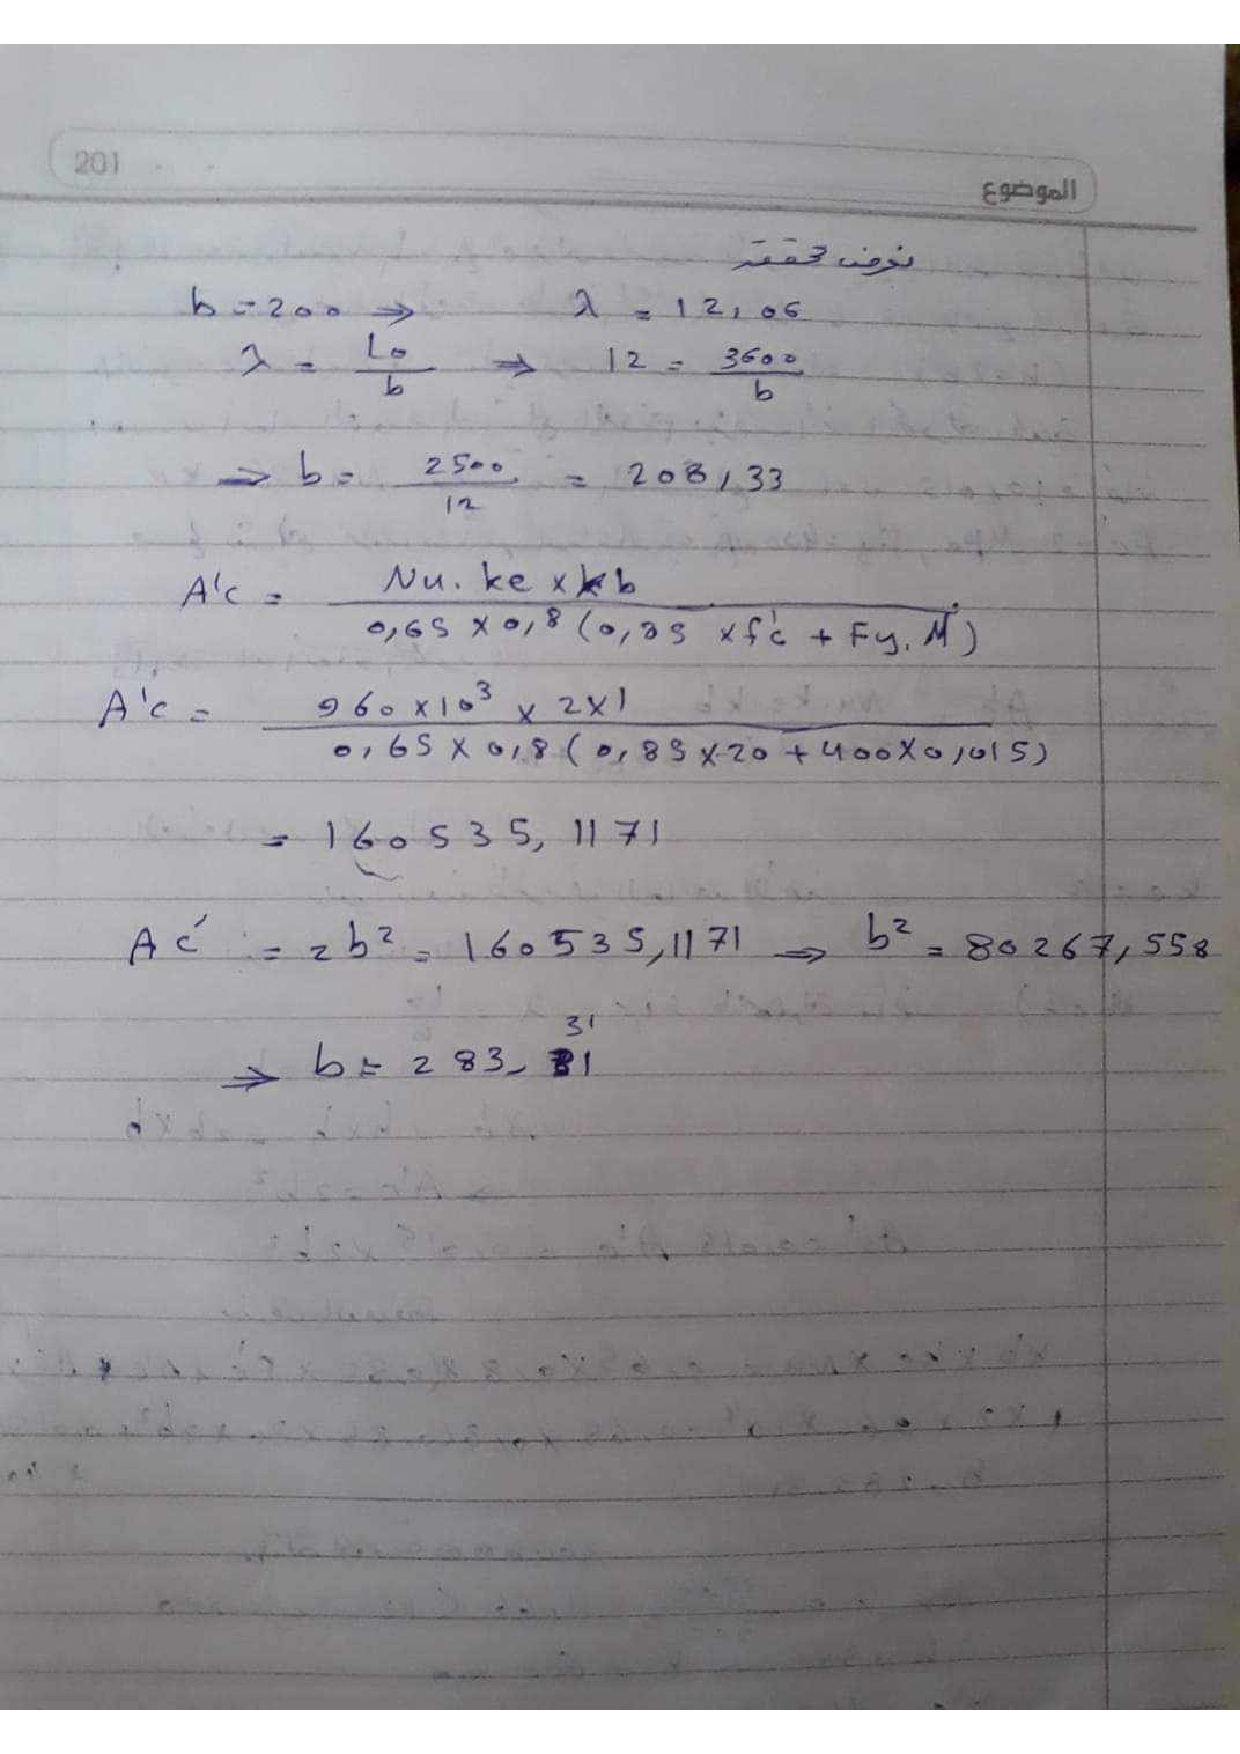 201
الموضوع
نفرض محققة
b = 200 ⇒ λ = 12,06
λ = Lo / b ⇒ 12 = 3600 / b
⇒ b = 2500 / 12 = 208,33
A'c = Nu. ke x kb / 0,65 x 0,8 (0,85 x f'c + Fy. M)
A'c = 960 x 10³ x 2x1 / 0,65 x 0,8 (0,85 x 20 + 400 x 0,015)
= 160535,1171
A'c = 2b² = 160535,1171 ⇒ b² = 80267,558
⇒ b = 283, 31